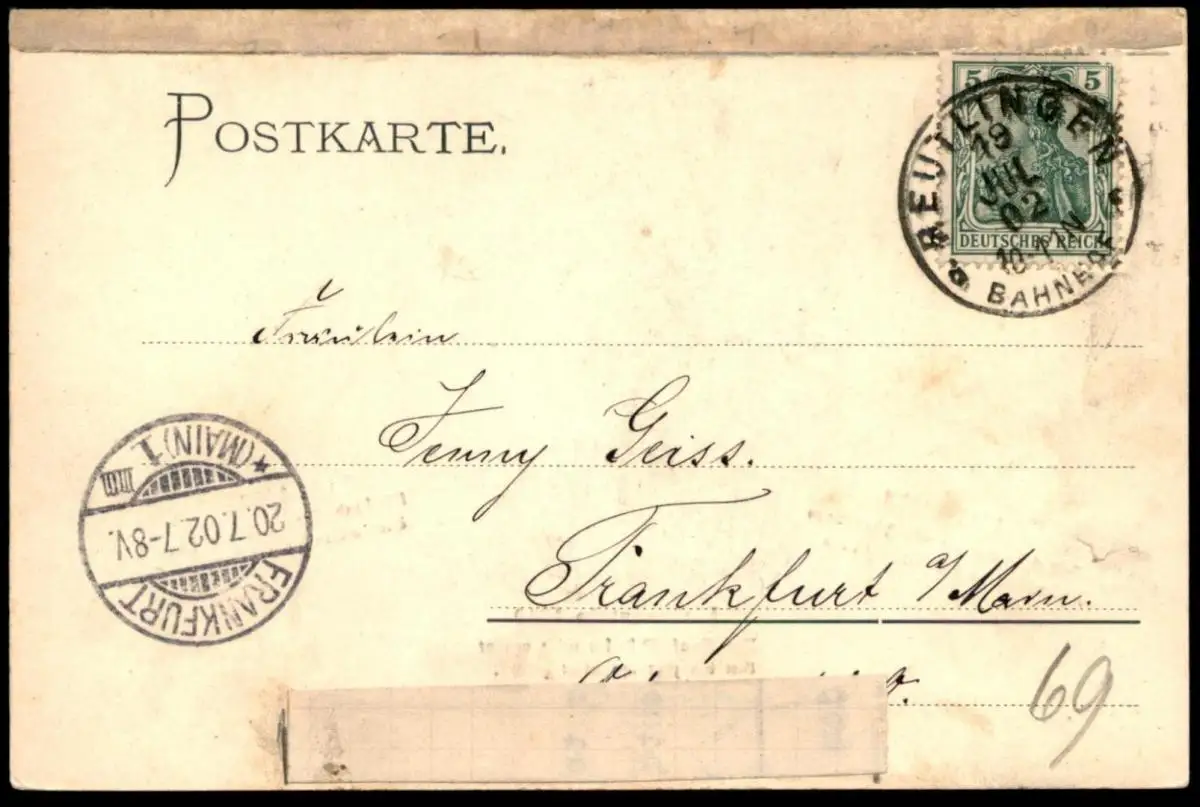 POSTKARTE.
5 5
DEUTSCHES REICH
REUTLINGEN
19
JUL
02
10-11N
BAHNHOF
Fräulein
Jenny Geiss.
Frankfurt a/Main.
FRANKFURT
20.7.02.7-8V.
* (MAIN) 1
69